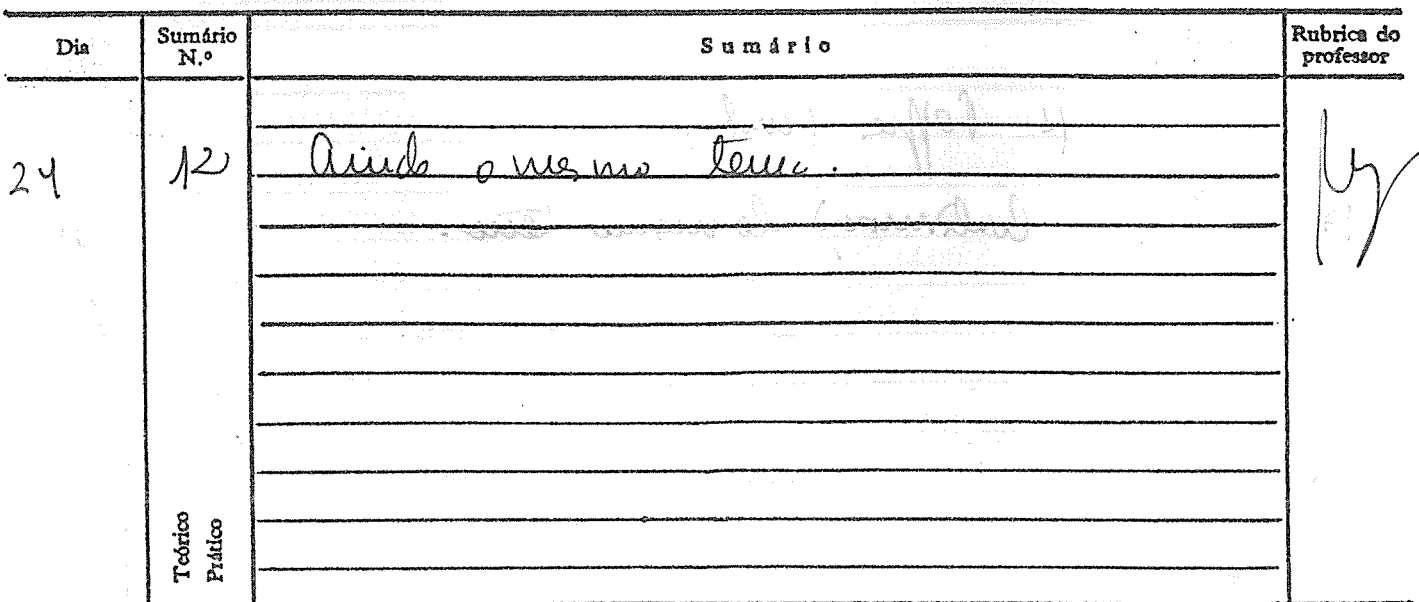 Dia Sumário N.º Sumário Rubrica do professor
24 12 Ainda o mesmo tema.
Teórico
Prático